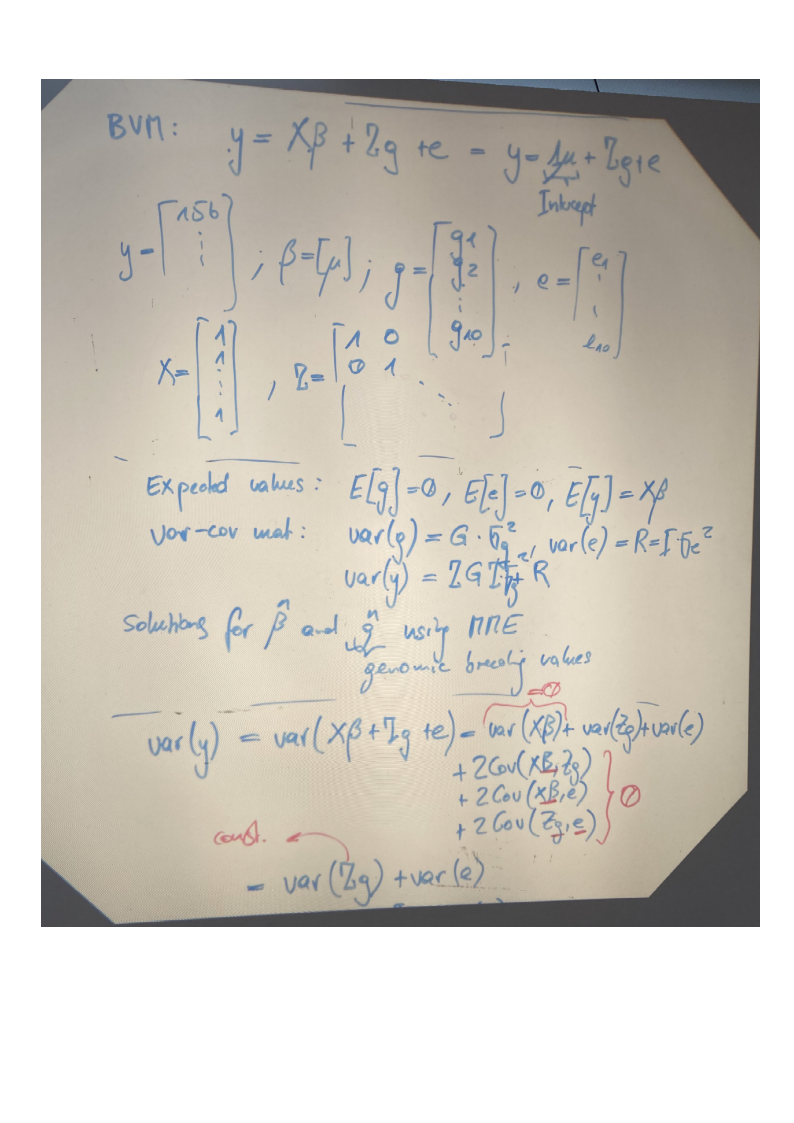 BVM: y = Xβ + Zg + e = y = 1μ + Zg + e
Intercept
y = [156 ⋮] ; β = [μ] ; g = [g1 g2 ⋮ g10] , e = [e1 ⋮ e10]
X = [1 1 ⋮ 1] , Z = [1 0 0 1 ⋱]
Expected values: E[g] = 0, E[e] = 0, E[y] = Xβ
var-cov mat: var(g) = G · σg², var(e) = R = I·σe²
var(y) = ZGZᵀσg² + R
Solutions for β̂ and ĝ using MME
genomic breeding values
= 0
var(y) = var(Xβ + Zg + e) = var(Xβ) + var(Zg) + var(e)
+ 2Cov(Xβ, Zg)
+ 2Cov(Xβ, e)
+ 2Cov(Zg, e) } 0
const.
= var(Zg) + var(e)